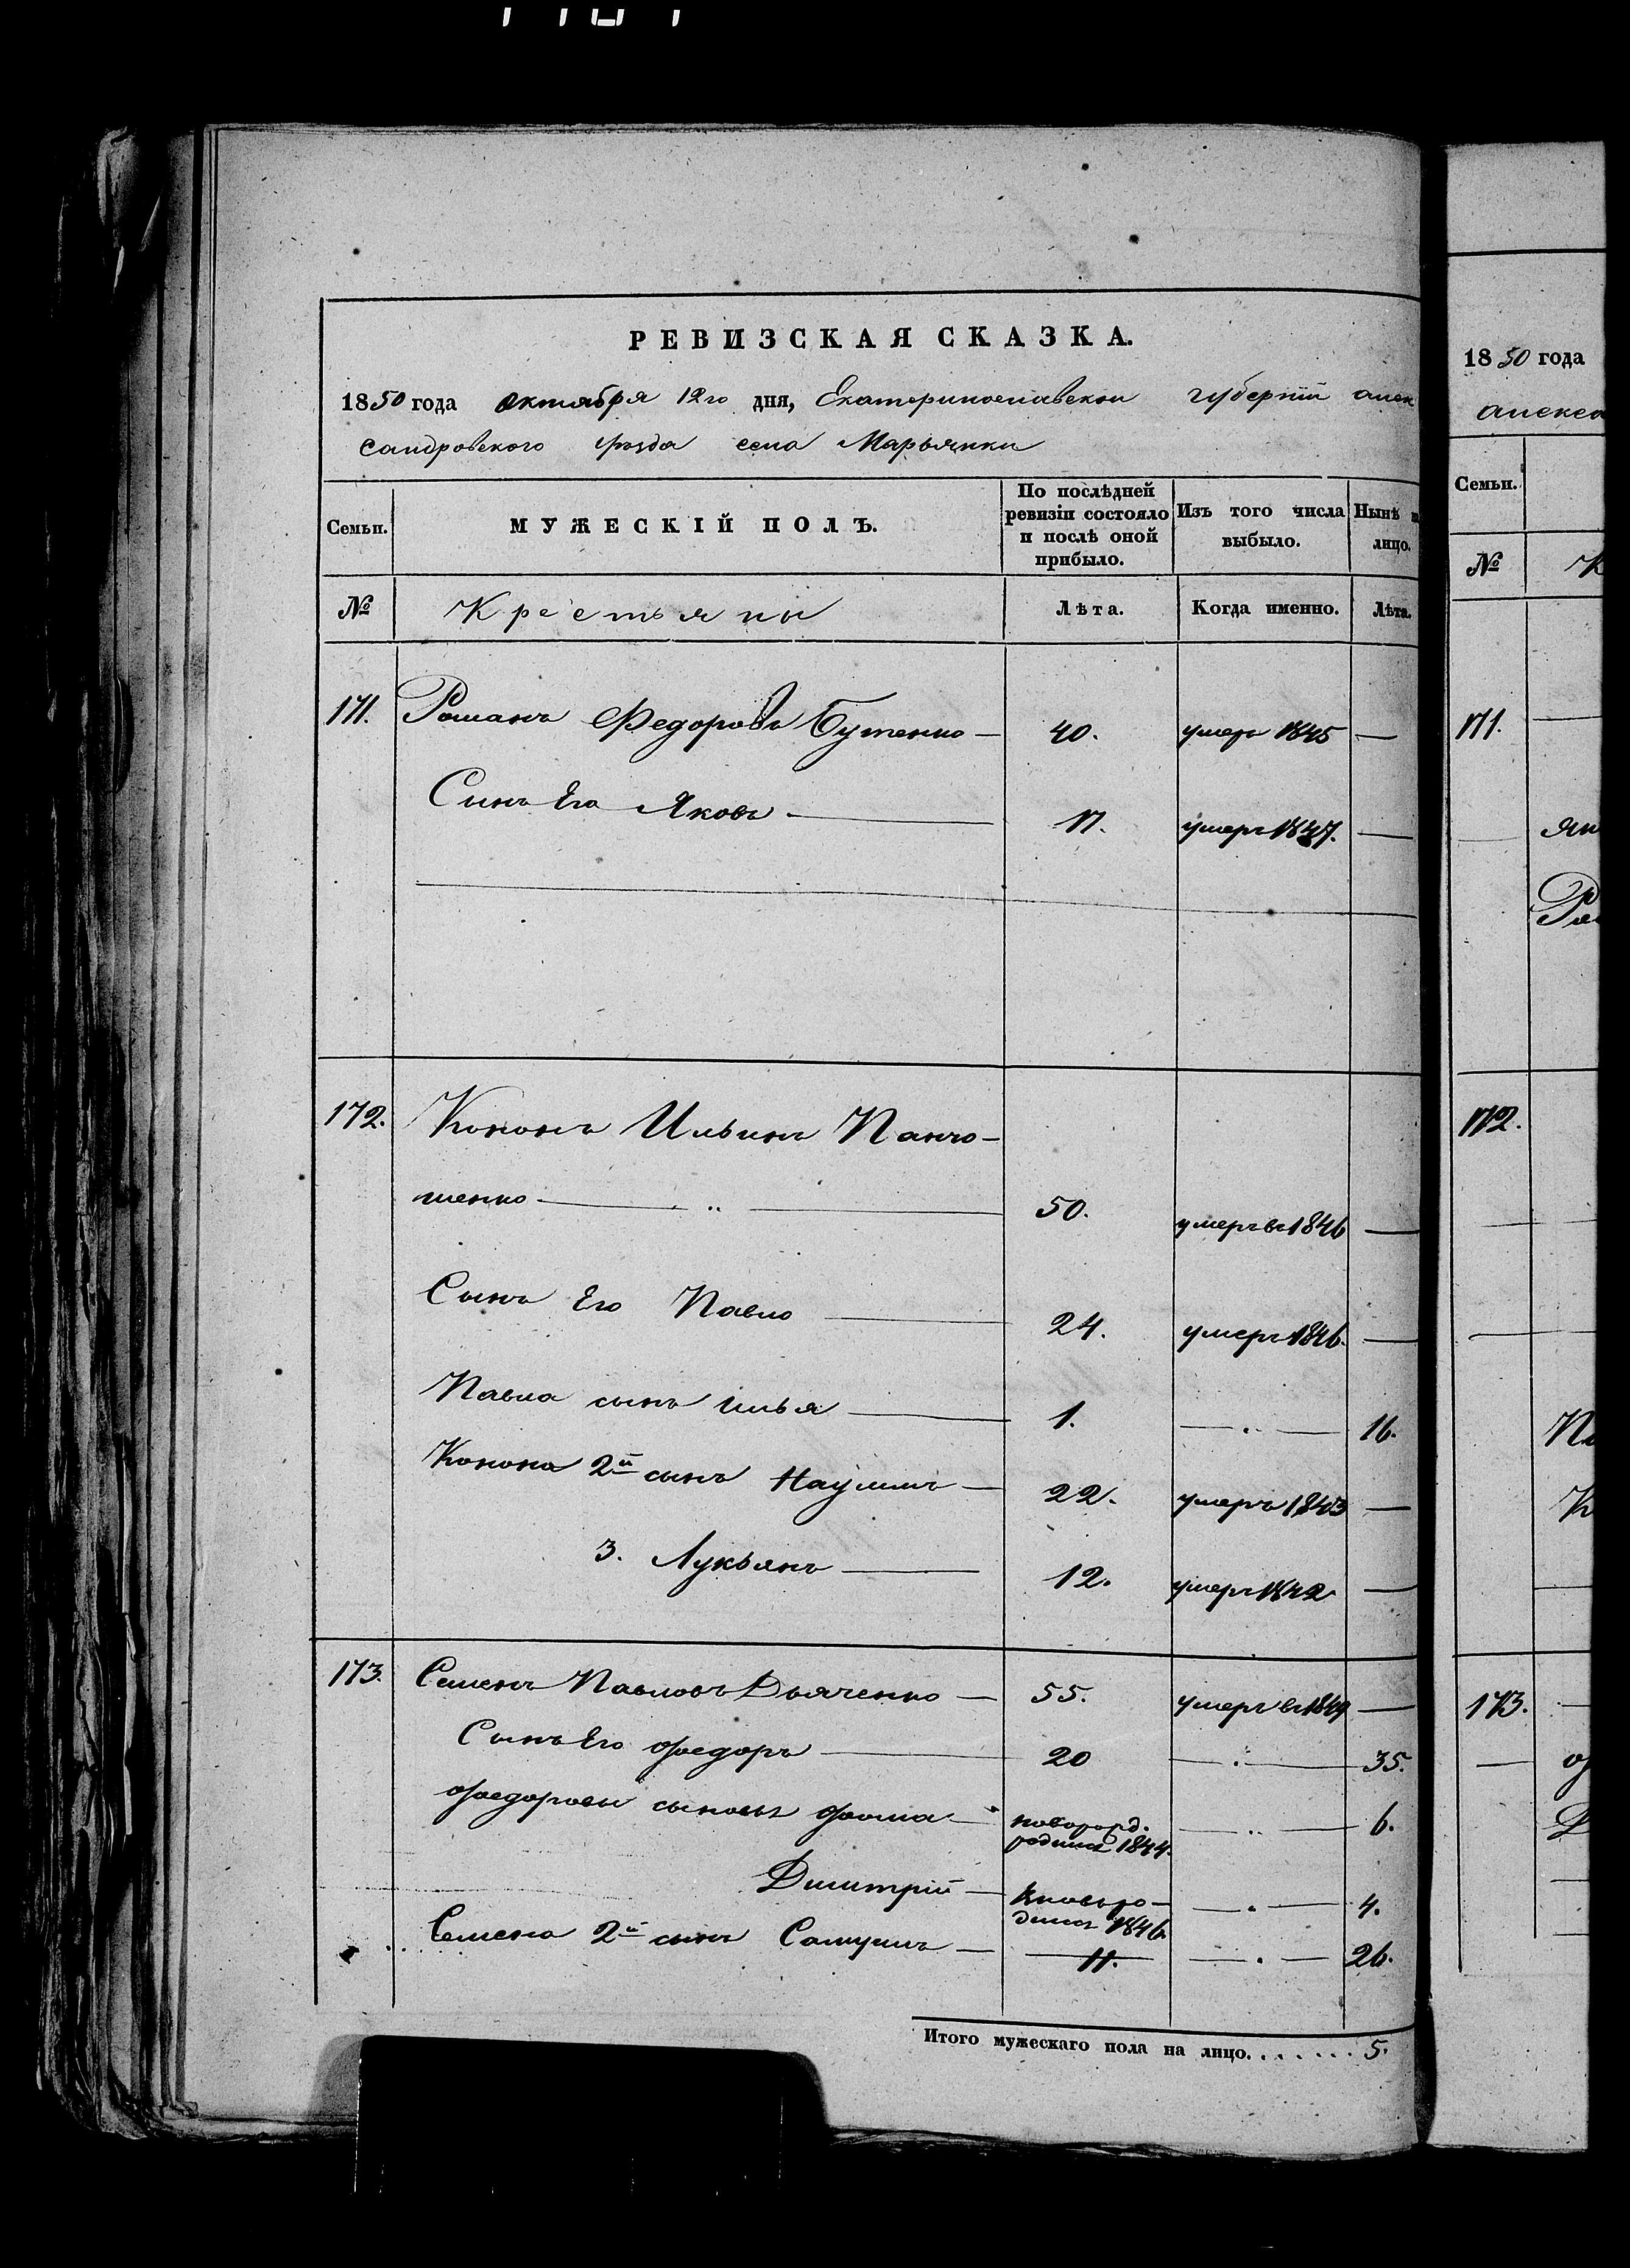 РЕВИЗСКАЯ СКАЗКА.
1850 года октября 12го дня, Екатеринославской губерніи алек
сандровского уѣзда села Марьянки
Семьи.
МУЖЕСКІЙ ПОЛЪ.
По послѣдней ревизіи состояло и послѣ оной прибыло.
Изъ того числа выбыло.
Нынѣ
лицо.
№ Крестьяны Лѣта. Когда именно. Лѣта.
171. Романъ Федоровъ Бутенко — 40. умеръ 1845 —
Синъ Его Яковъ — 17. умеръ 1847. —
172. Кононъ Ильинъ Панчо-
шенко — " — 50. умеръ въ 1846 —
Сынъ Его Павло — 24. умеръ 1846. —
Павла сынъ Илья — 1. — " — 16.
Конона 2й сынъ Наумъ — 22. умеръ 1843 —
3. Лукьянъ — 12. умеръ 1842 —
173. Семенъ Павловъ Дьяченко — 55. умеръ въ 1849 —
Сынъ Его Федоръ — 20 — " — 35.
Федоровы сыновья Фома — новорожд.
1844. — " — 6.
Димитрій —
1846. — " — 4.
Семена 2й сынъ Самуилъ — 11. — " — 26.
Итого мужескаго пола на лицо. . . . . . . 5.
1850 года
алекса
Семьи.
№ К
171.
Ро
172.
173.